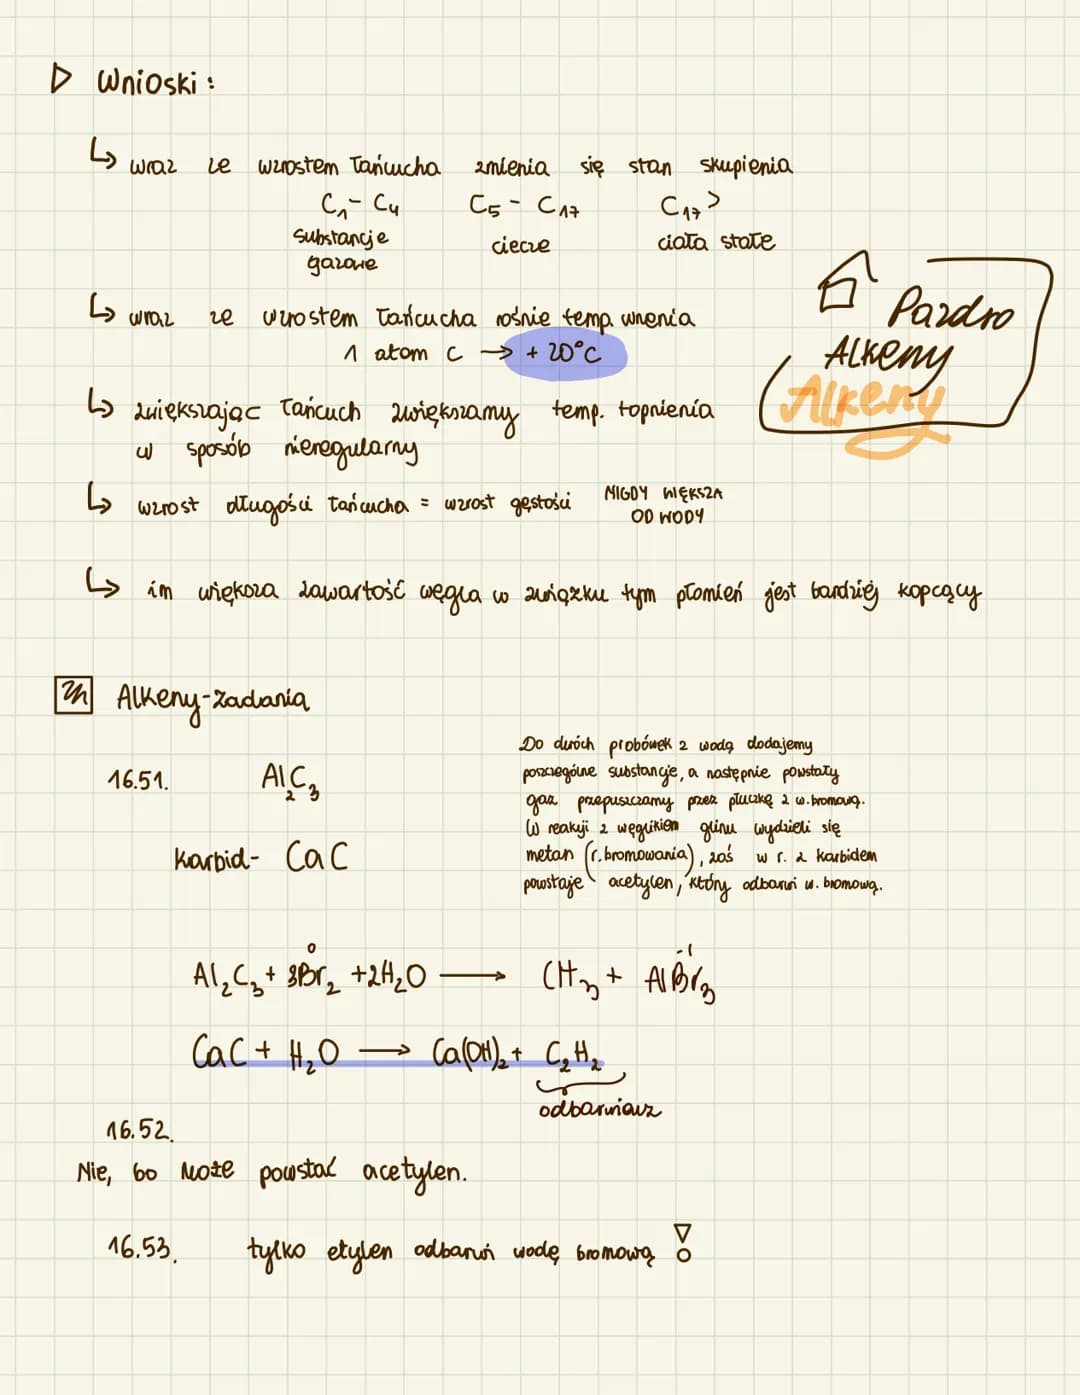 Wnioski:
↳ wraz ze wzrostem łańcucha zmienia się stan skupienia
C₁ - C₄ C₅ - C₁₇ C₁₇ >
substancje gazowe ciecze ciała stałe
↳ wraz ze wzrostem łańcucha rośnie temp. wrzenia
1 atom C → + 20°C
Pazdro
Alkeny
Alkeny
↳ zwiększając łańcuch zwiększamy temp. topnienia
w sposób nieregularny
↳ wzrost długości łańcucha = wzrost gęstości NIGDY WIĘKSZA
OD WODY
↳ im większa zawartość węgla w związku tym płomień jest bardziej kopcący
Alkeny - zadania
16.51. Al₂C₃
Karbid - CaC
Do dwóch probówek z wodą dodajemy
poszczególne substancje, a następnie powstały
gaz przepuszczamy przez płuczkę z w. bromową.
W reakcji z węglikiem glinu wydzieli się
metan (r. bromowania), zaś w r. z karbidem
powstaje acetylen, który odbarwi w. bromową.
0 -1
Al₂C₃ + 3Br₂ + 2H₂O → CH₃ + AlBr₃
CaC + H₂O → Ca(OH)₂ + C₂H₂
odbarwiacz
16.52.
Nie, bo może powstać acetylen.
16.53. tylko etylen odbarwi wodę bromową !